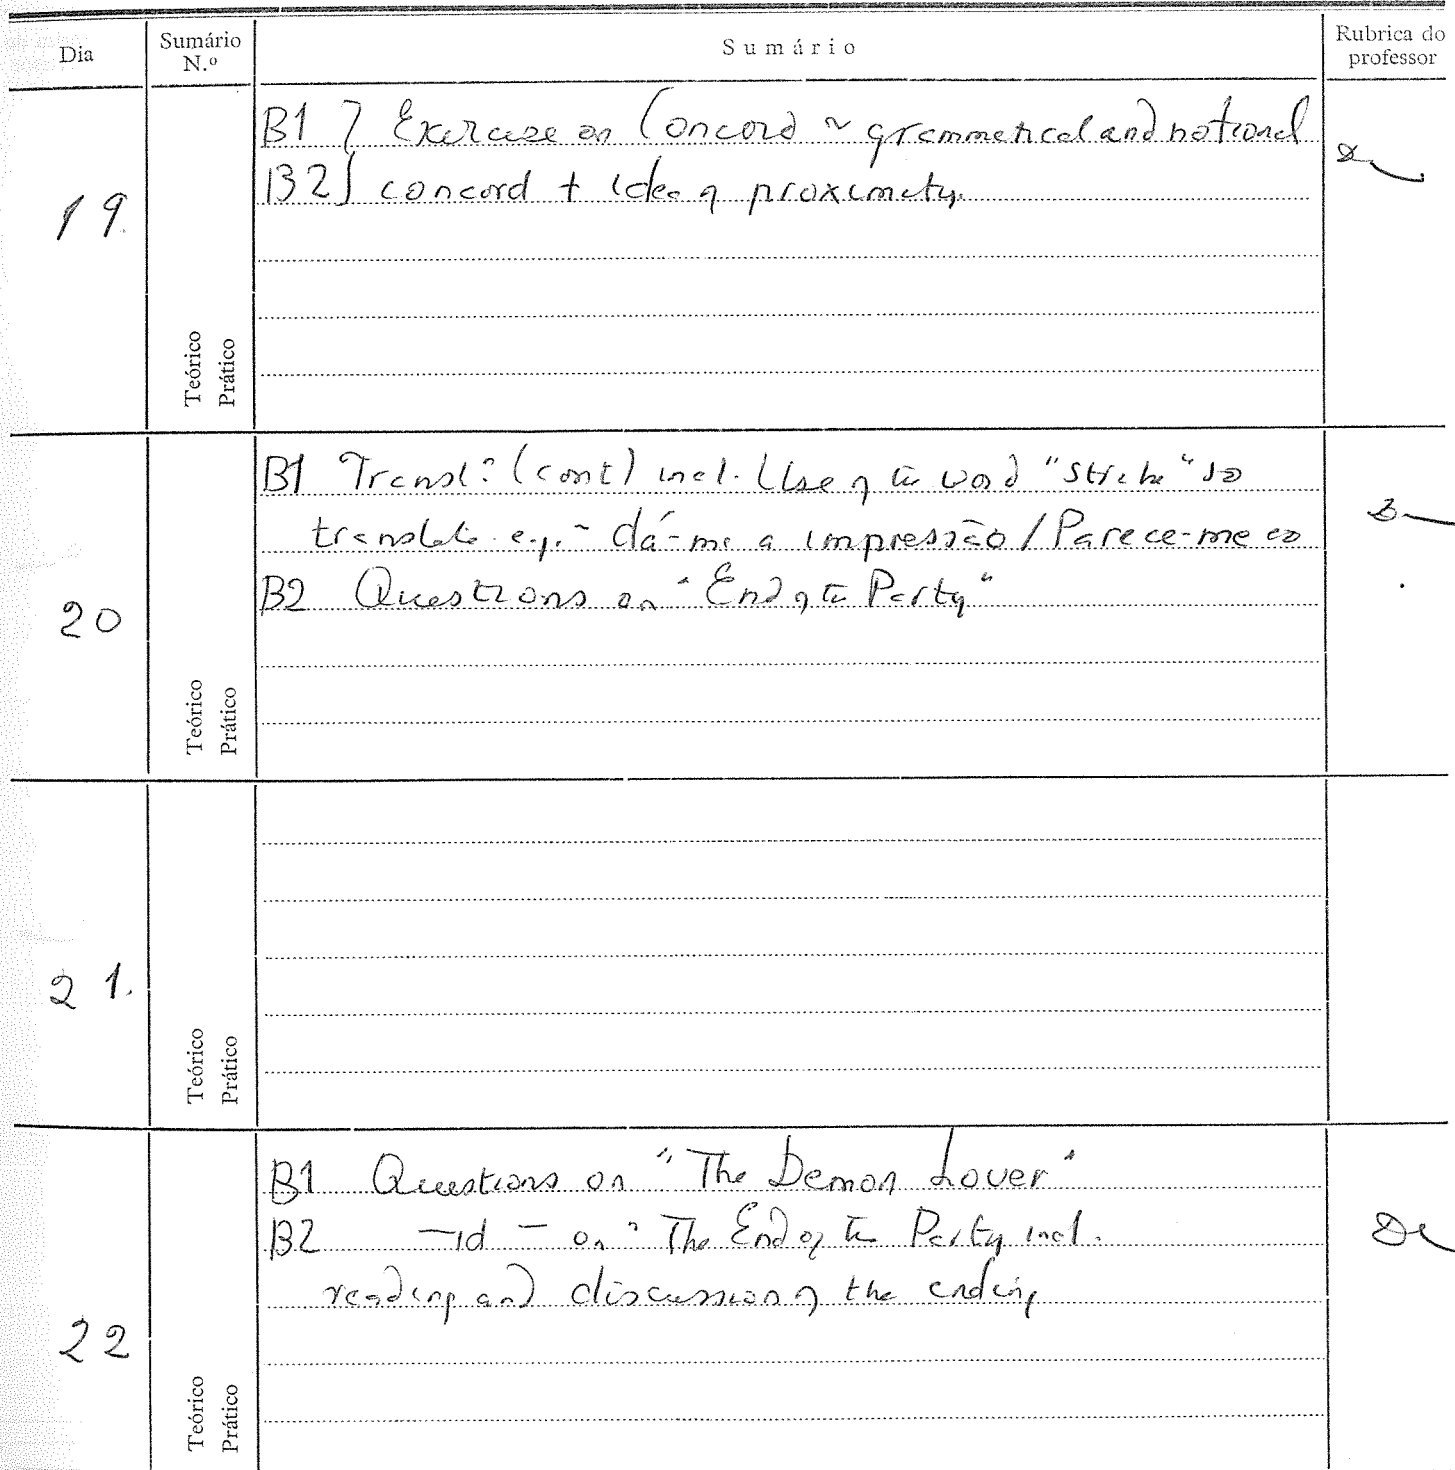 Dia
Sumário N.º
Sumário
Rubrica do professor
19.
B1 } Exercise on Concord ~ grammatical and notional
B2 } concord + idea of proximity.
Teórico
Prático
20
B1 Transl: (cont) incl. Use of the word "strike" to
translate e.g. - dá-me a impressão / Parece-me
B2 Questions on "End of the Party"
Teórico
Prático
21.
Teórico
Prático
22
B1 Questions on "The Demon Lover"
B2 -id- on "The End of the Party incl.
reading and discussion of the ending
Teórico
Prático